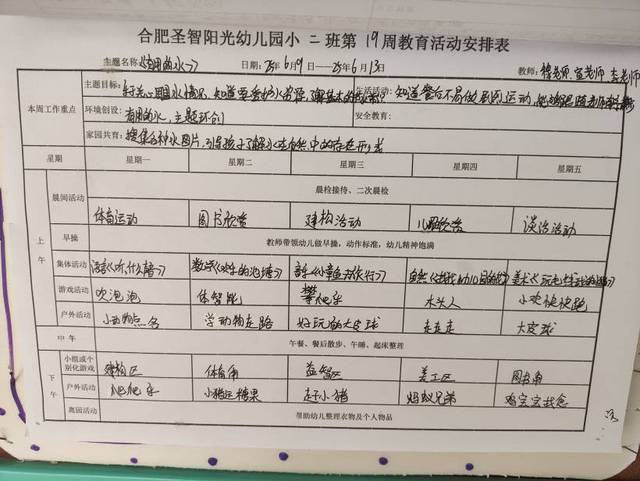 合肥圣智阳光幼儿园小二班第19周教育活动安排表
主题名称《有用的水》 日期：25年6月9日——25年6月13日 教师：
本周工作重点 主题目标： 生活活动：知道餐后不易做剧烈运动
环境创设：有用的水，主题环创 安全教育：
家园共育：搜集各种水图片，引导孩子了解水在自然中的存在形式
星期 星期一 星期二 星期三 星期四 星期五
上午 晨间活动 晨检接待、二次晨检
体育运动 图书欣赏 建构活动 儿歌欣赏 谈话活动
早操 教师带领幼儿做早操，动作标准，幼儿精神饱满
集体活动 语言《听，什么声音》 数学
游戏活动 吹泡泡 体智能 攀爬乐 木头人 小欢快快跑
户外活动 小动物点名 学动物走路 好玩的大皮球 走走走 大皮球
中午 午餐、餐后散步、午睡、起床整理
下午 小组或个别化游戏 建构区 体育角 益智区 美工区 图书角
户外活动 爬爬乐 小猪运糖果 赶小猪 蚂蚁兄弟 鸡宝宝找食
离园活动 帮助幼儿整理衣物及个人物品